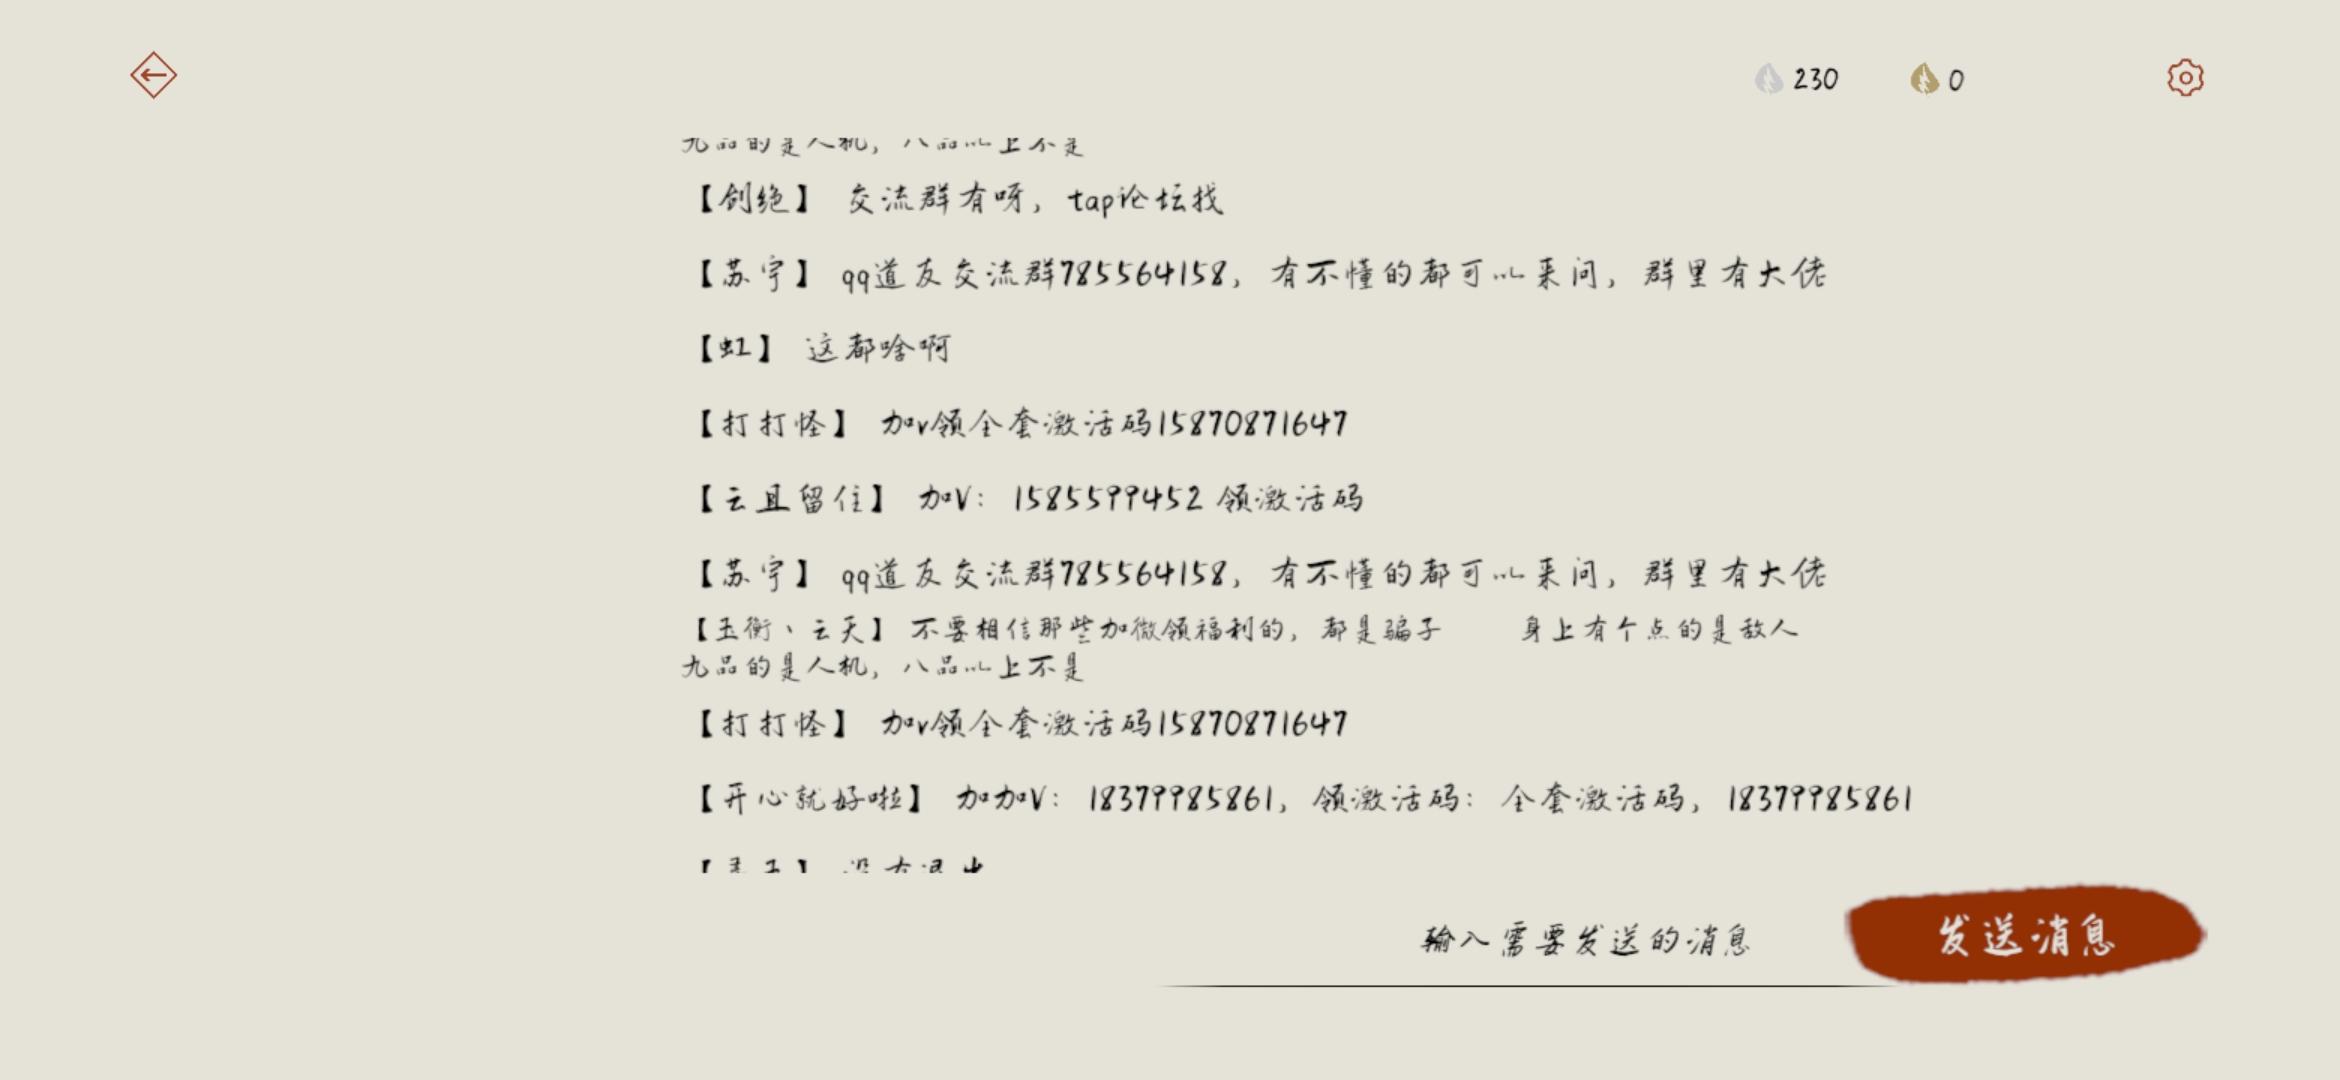 230
0
九品的是人机，八品以上不是
【剑绝】 交流群有呀，tap论坛找
【苏宇】 qq道友交流群785564158，有不懂的都可以来问，群里有大佬
【虹】 这都啥啊
【打打怪】 加v领全套激活码15870871647
【云且留住】 加V：1585599452 领激活码
【苏宇】 qq道友交流群785564158，有不懂的都可以来问，群里有大佬
【玉衡丶云天】 不要相信那些加微领福利的，都是骗子 身上有个点的是敌人
九品的是人机，八品以上不是
【打打怪】 加v领全套激活码15870871647
【开心就好啦】 加加V：18379985861，领激活码：全套激活码，18379985861
输入需要发送的消息
发送消息